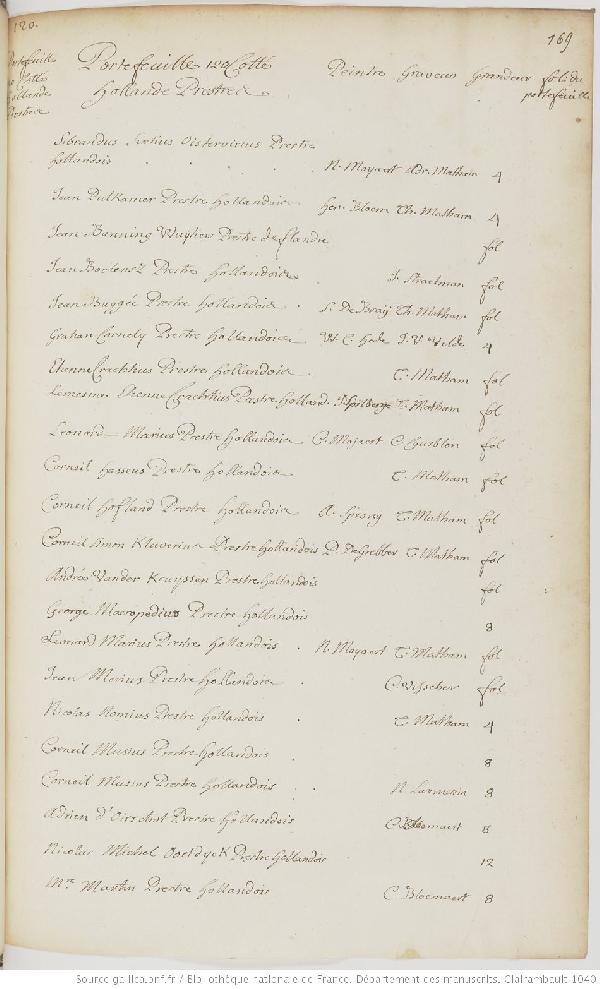 120.
169
Portefeuille 120 Cotté Peintre Graveur Grandeur fol. du
Hollande Prestres portefeuille
Sibrandus Sixtius Oistervicus Prestre
Hollandois N. Moyaert Adr. Matham 4
Jean Putkamer Prestre Hollandois Her. Bloem Th. Matham 4
Jean Banning Wuytiers Prestre de flandre fol
Jean Boelensz Prestre Hollandois J. Straetman fol
Jean Buggée Prestre Hollandois S. De Bray Th. Matham fol
Gratian Cornely Prestre Hollandois W. C. Heda J. V. Velde 4
Etienne Crachtius Prestre Hollandois T. Matham fol
Le mesme Etienne Crachtius Prestre Holland. J. Spilberge T. Matham fol
Leonard Marius Prestre Hollandois C. Moyaert fol
Corneil Hasseus Prestre Hollandois T. Matham fol
Corneil Hofland Prestre Hollandois A. Sprong T. Matham fol
Corneil Simon Kluverius Prestre Hollandois P. De Grebber T. Matham fol
André Vander Kruyssen Prestre Hollandois fol
George Macropedius Prestre Hollandois 8
Leonard Marius Prestre Hollandois N. Moyaert T. Matham fol
Jean Merius Prestre Hollandois C. Visscher fol
Nicolas Nomius Prestre Hollandois T. Matham 4
Corneil Musius Prestre Hollandois 8
Corneil Musius Prestre Hollandois N. Larmessin 8
Adrien d'Oirschot Prestre Hollandois C. Bloemaert 8
Nicolas Michel Oostdyck Prestre Hollandois 12
Mr. Martin Prestre Hollandois C. Bloemaert 8
Source gallica.bnf.fr / Bibliothèque nationale de France. Département des manuscrits. Clairambault 1040